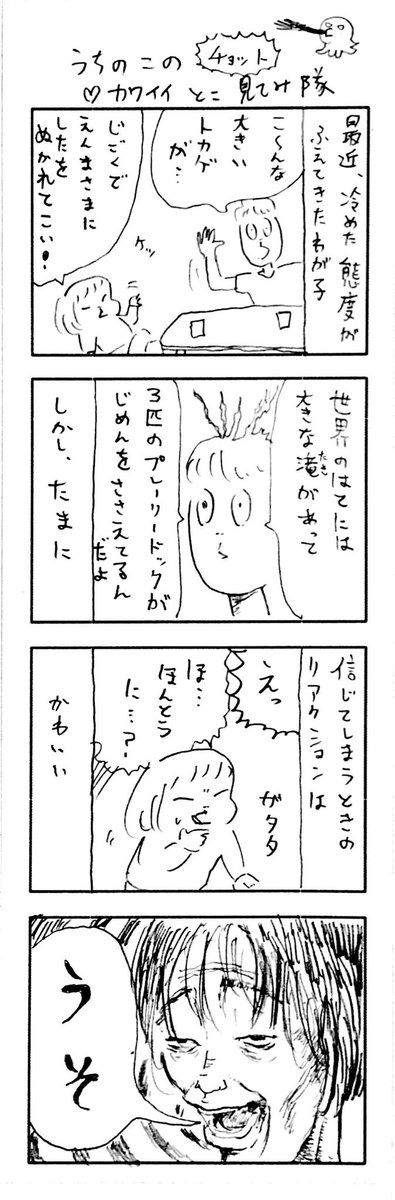 うちのこの
チョット
♡カワイイ とこ 見てみ隊
最近、冷めた態度が
ふえてきたわが子
こ〜んな
大きい
トカゲ
が…
じごくで
えんまさまに
したを
ぬかれてこい!
ケッ
世界のはてには
大きな滝があって
たき
3匹のプレーリードックが
じめんをささえてるん
だよ
しかし、たまに
信じてしまうときの
リアクションは
えっ
ほ…
ほんとう
に…?
ガタタ
かわいい
うそ